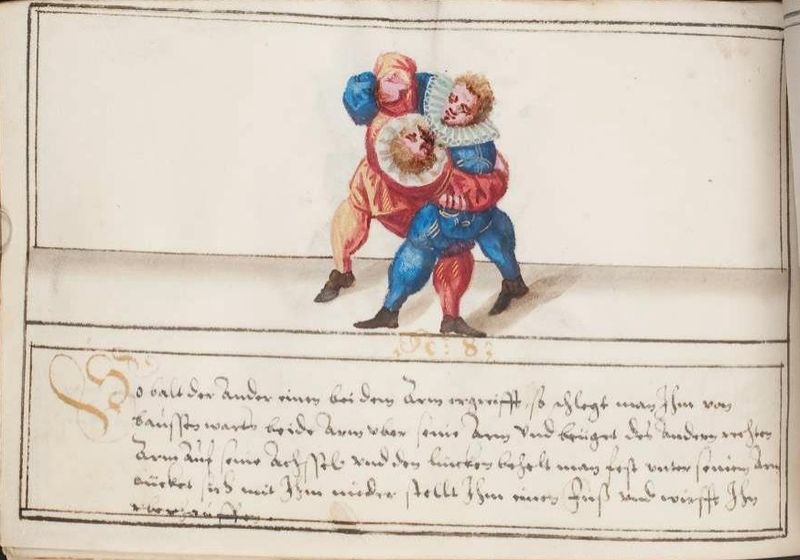 No: 8:
So balt der Ander einen bei dem Arm ergreifft, so schlegt man Ihm von
daussen warts beide Arm vber seine Arm Vnd beuget des Andern rechten
Arm Auf seine Achssel vnd den lincken behelt man fest vnter seinem Arm
bücket sich mit Ihm nieder stellt Ihm einen Fuß vnd wirfft Ihn